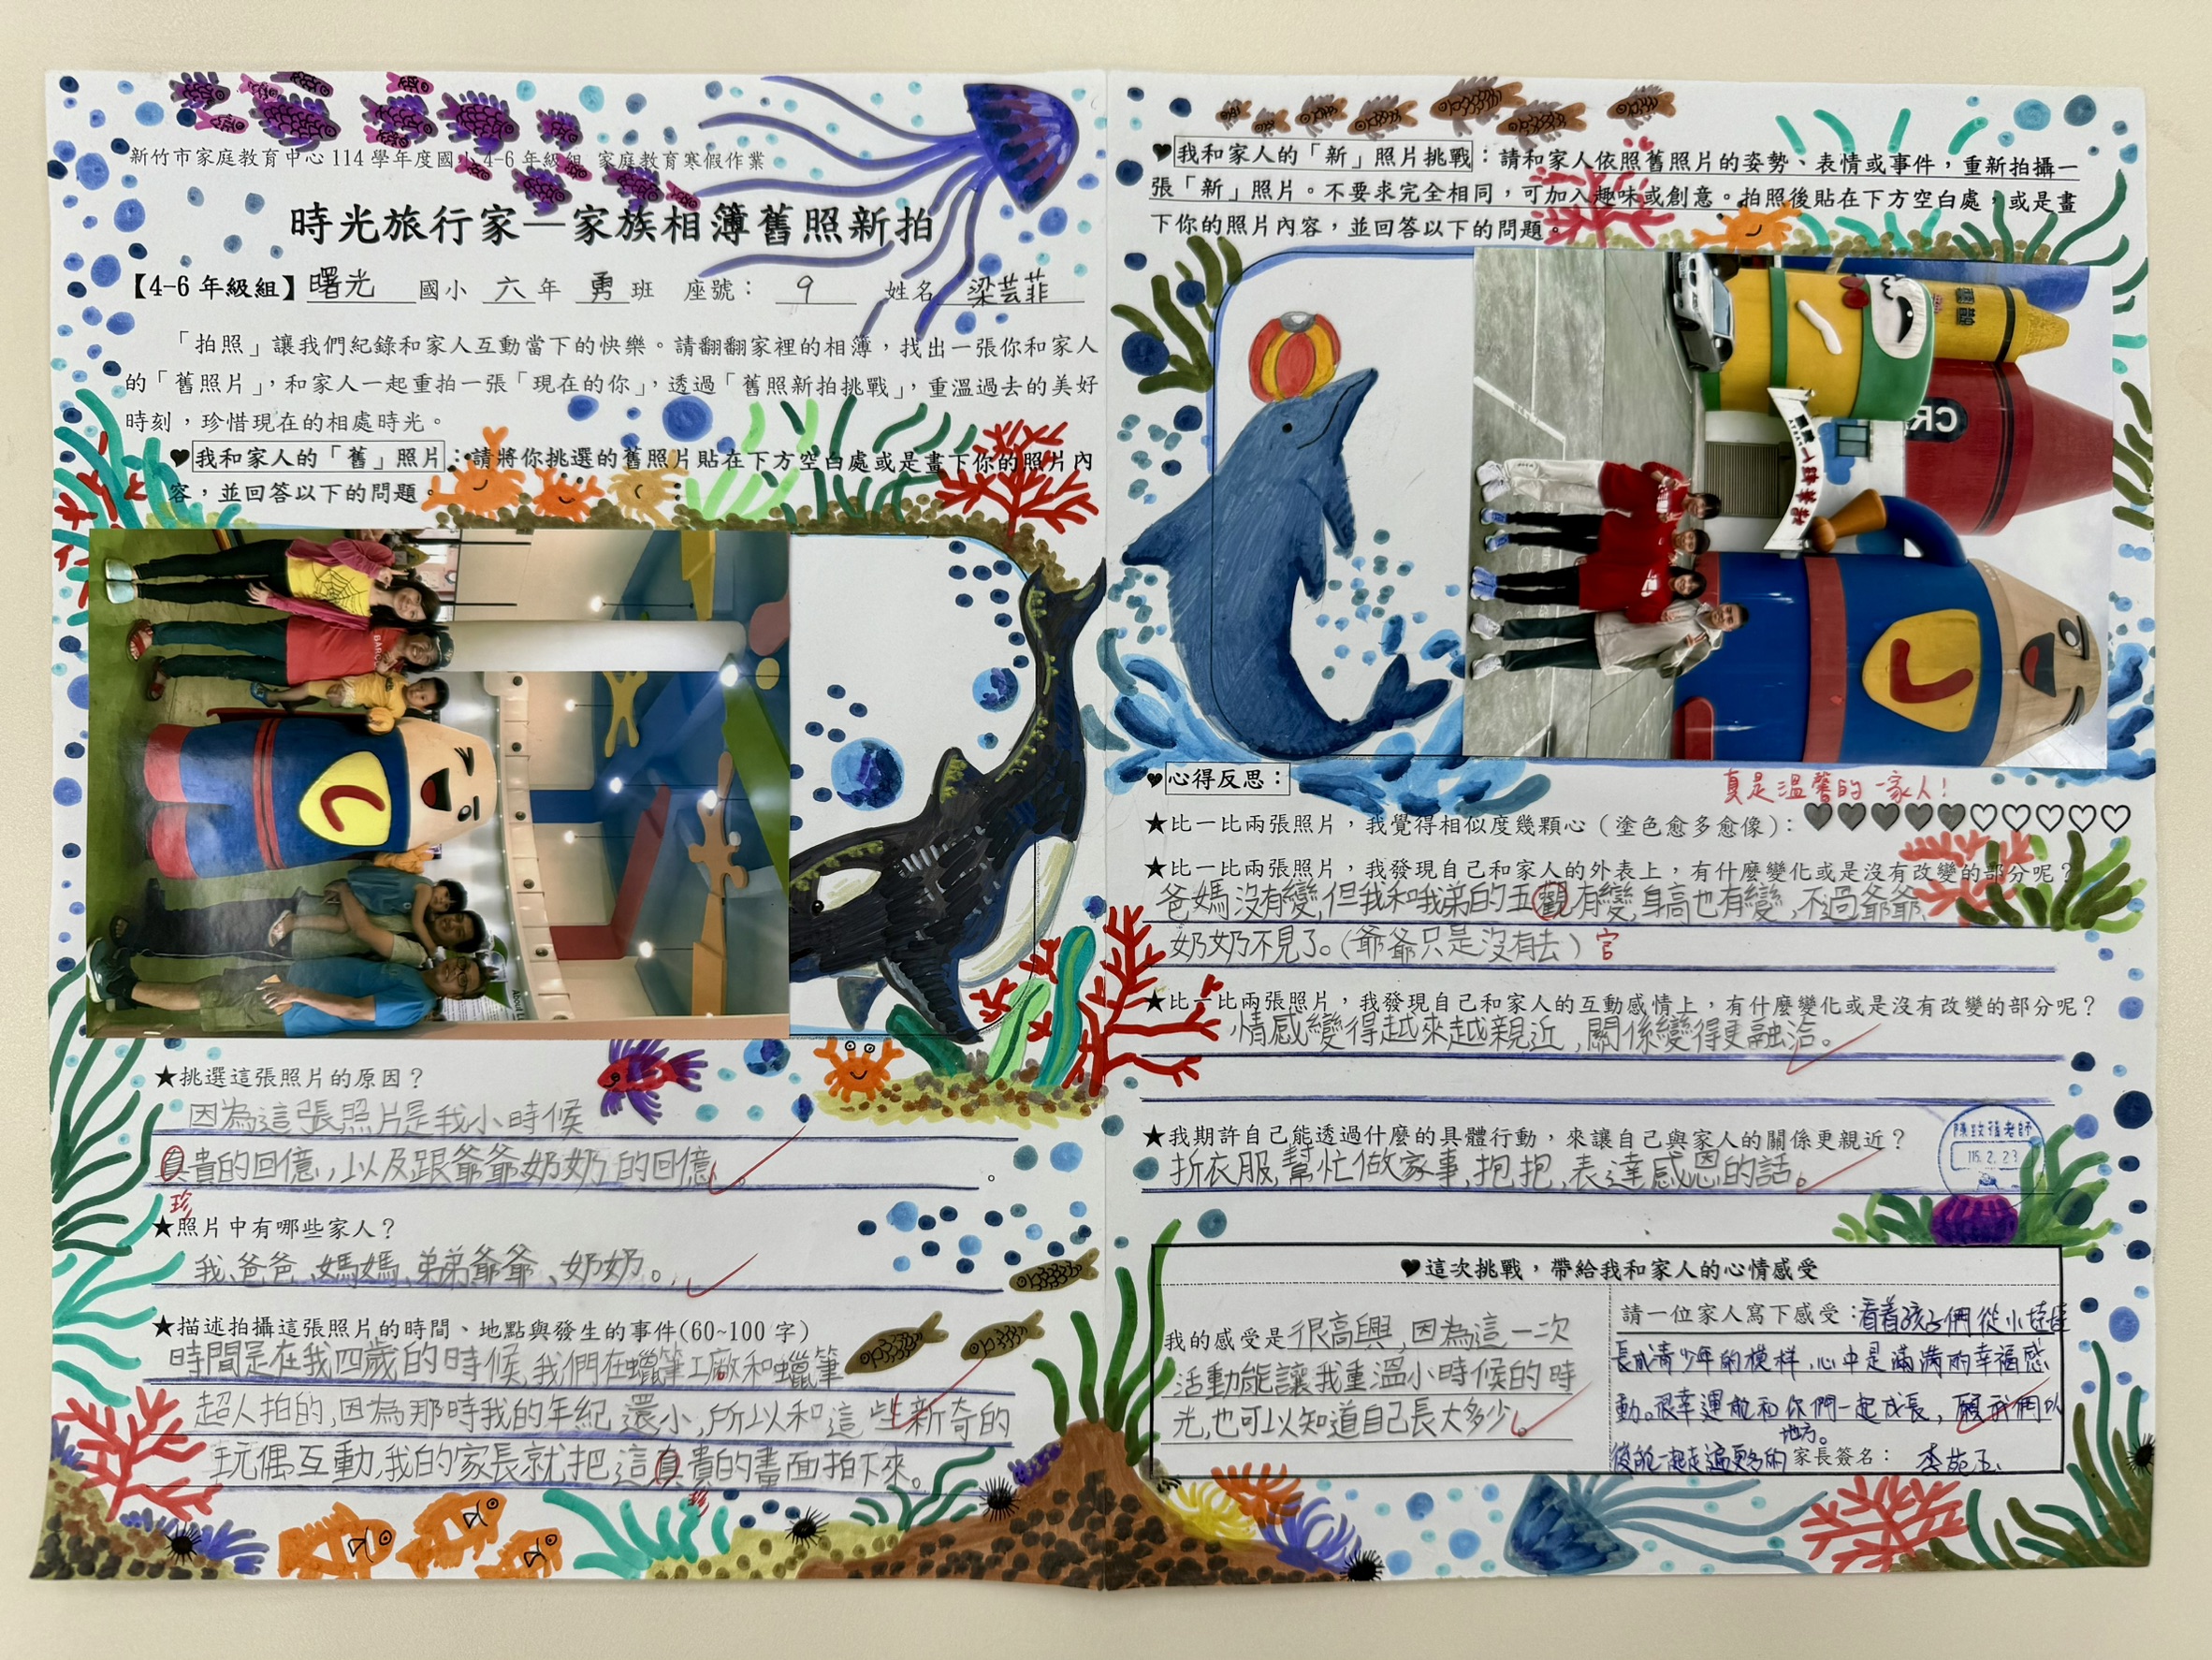 新竹市家庭教育中心 114 學年度國小 4-6 年級組 家庭教育寒假作業
時光旅行家—家族相簿舊照新拍
【4-6 年級組】曙光 國小 六 年 勇 班 座號： 9 姓名 梁芸菲
「拍照」讓我們紀錄和家人互動當下的快樂。請翻翻家裡的相簿，找出一張你和家人
的「舊照片」，和家人一起重拍一張「現在的你」，透過「舊照新拍挑戰」，重溫過去的美好
時刻，珍惜現在的相處時光。
♥我和家人的「舊」照片：請將你挑選的舊照片貼在下方空白處或是畫下你的照片內
容，並回答以下的問題。
★挑選這張照片的原因？
因為這張照片是我小時候
真貴的回憶，以及跟爺爺奶奶的回憶。
珍
★照片中有哪些家人？
我、爸爸、媽媽、弟弟爺爺、奶奶。
★描述拍攝這張照片的時間、地點與發生的事件(60~100 字)
時間是在我四歲的時候，我們在蠟筆工廠和蠟筆
超人拍的，因為那時我的年紀還小，所以和這些新奇的
玩偶互動，我的家長就把這真貴的畫面拍下來。
珍
♥我和家人的「新」照片挑戰：請和家人依照舊照片的姿勢、表情或事件，重新拍攝一
張「新」照片。不要求完全相同，可加入趣味或創意。拍照後貼在下方空白處，或是畫
下你的照片內容，並回答以下的問題。
CR
♥心得反思：
真是溫馨的一家人！
★比一比兩張照片，我覺得相似度幾顆心（塗色愈多愈像）：♥♥♥♥♥♡♡♡♡♡
★比一比兩張照片，我發現自己和家人的外表上，有什麼變化或是沒有改變的部分呢？
爸媽沒有變，但我和我弟的五觀有變，身高也有變，不過爺爺
奶奶不見了。（爺爺只是沒有去）官
★比一比兩張照片，我發現自己和家人的互動感情上，有什麼變化或是沒有改變的部分呢？
情感變得越來越親近，關係變得更融洽。
★我期許自己能透過什麼的具體行動，來讓自己與家人的關係更親近？
折衣服，幫忙做家事，抱抱，表達感恩的話。
115.2.23
♥這次挑戰，帶給我和家人的心情感受
我的感受是很高興，因為這一次
活動能讓我重溫小時候的時
光，也可以知道自己長大多少。
請一位家人寫下感受：看着孩子們從小娃娃
長成青少年的模样，心中是滿滿的幸福感
動。很幸運能和你們一起成長，願我們以
後能一起走遍更多的地方。
家長簽名：